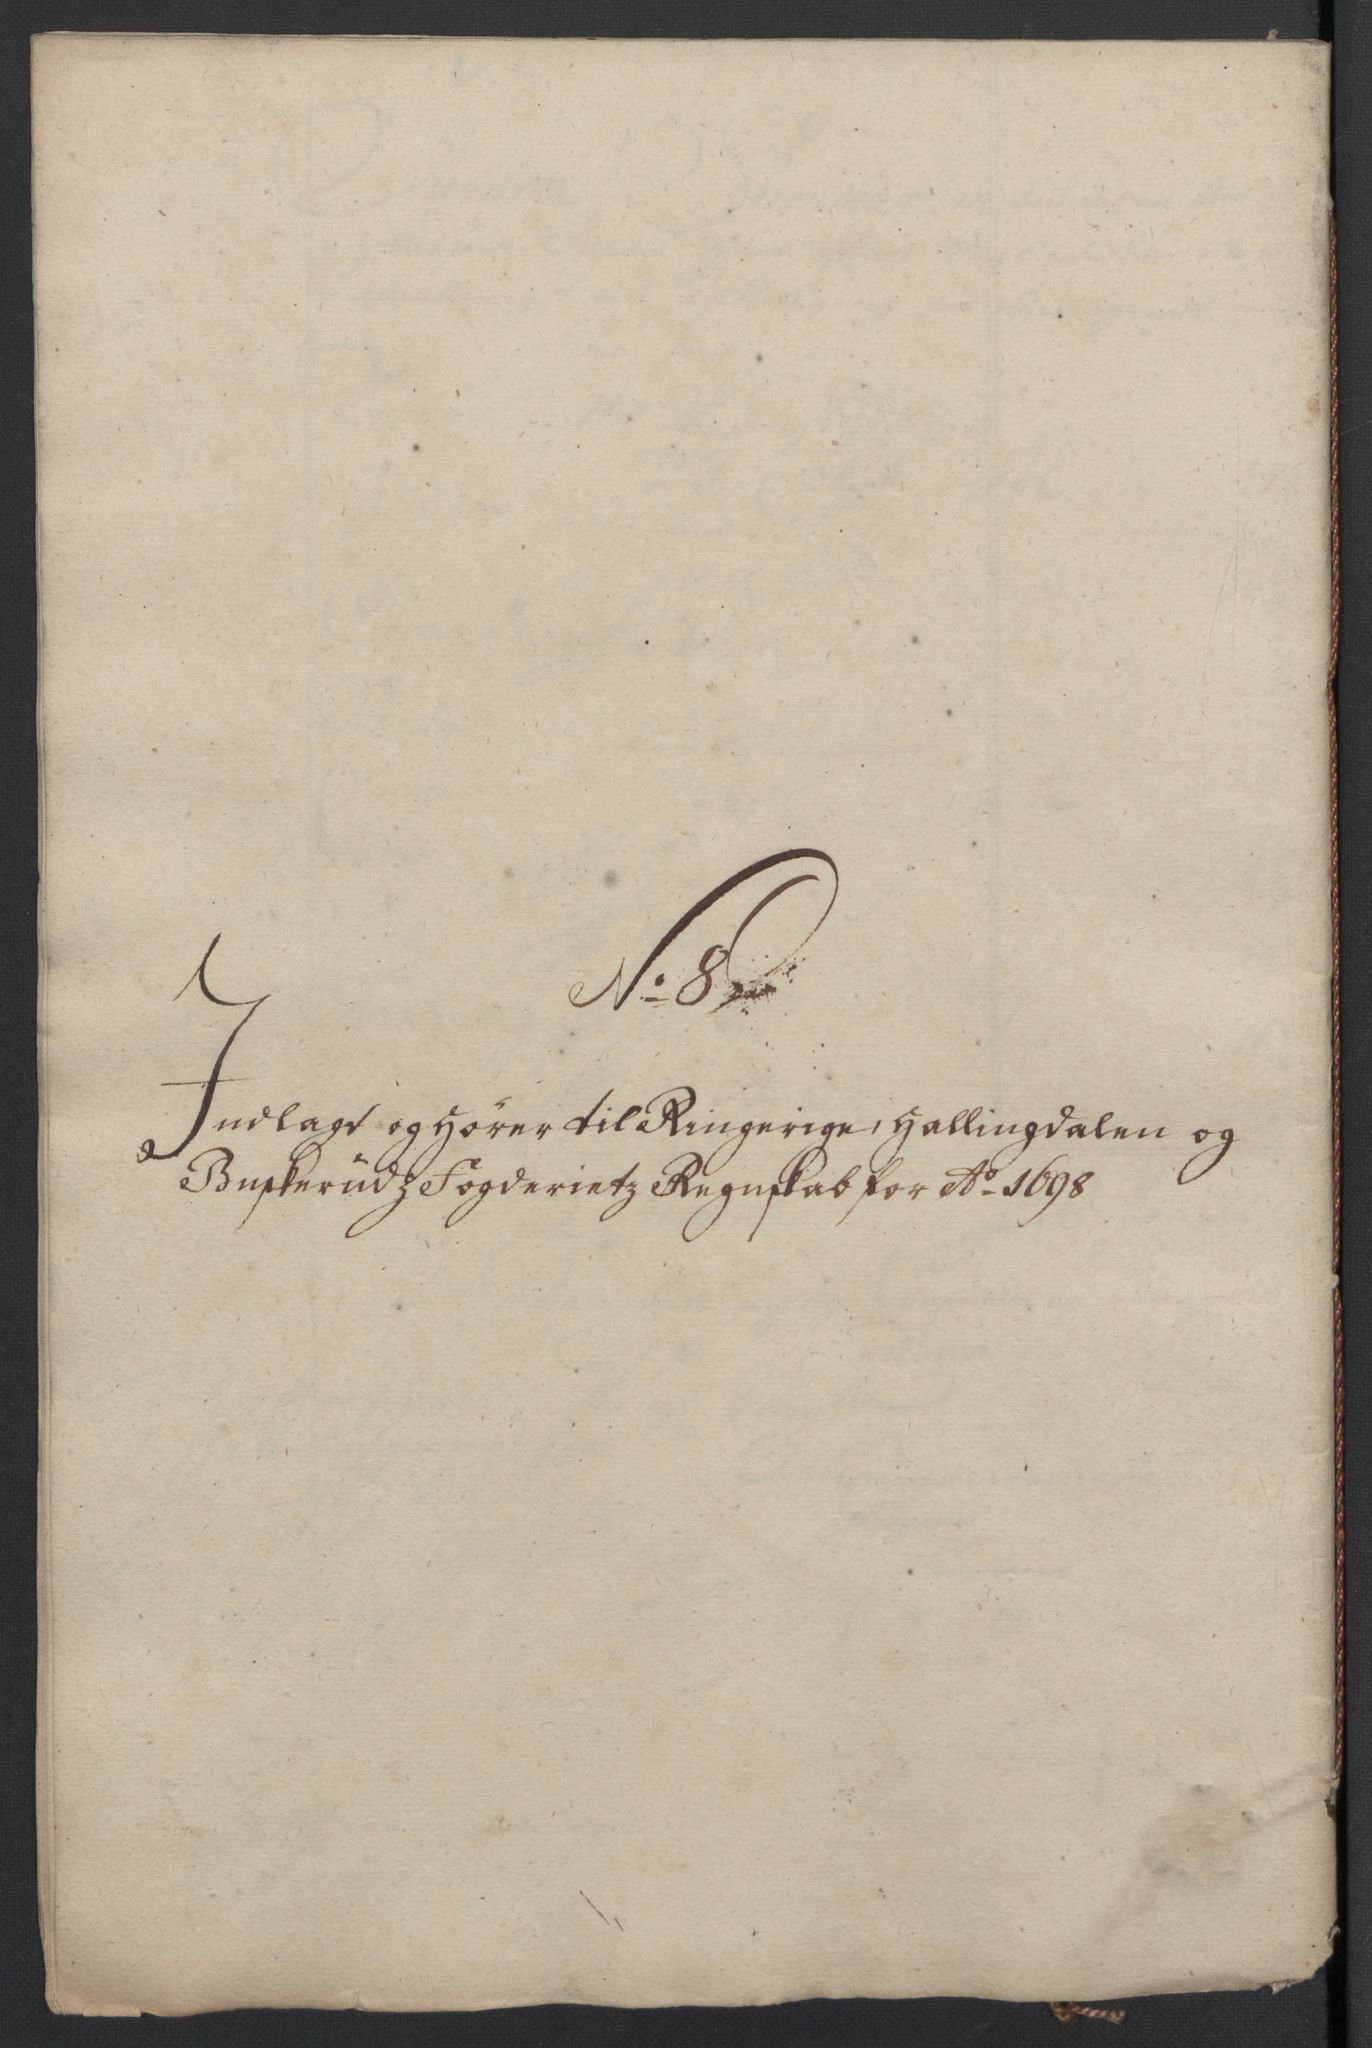 No 8
Indlagt og Hörer til Ringerige, Hallingdalen og
Buskerüdz Fogderietz Regnskab for Ao 1698